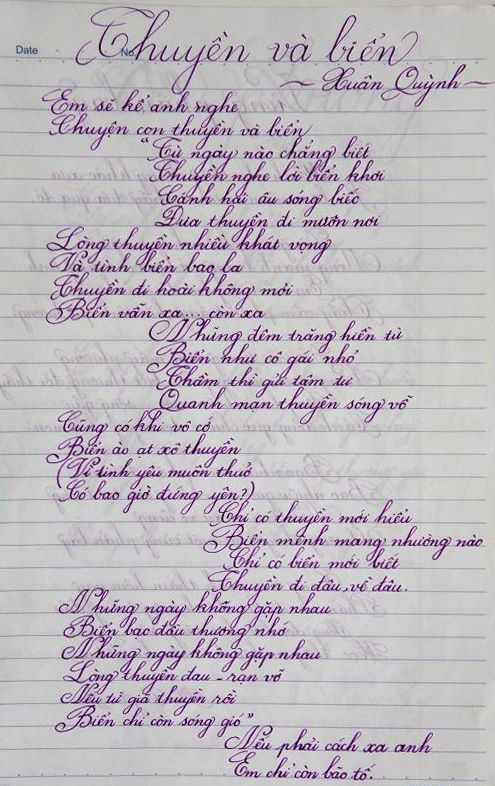 Date
No.
Thuyền và biển
~ Xuân Quỳnh ~
Em sẽ kể anh nghe
Chuyện con thuyền và biển
"Từ ngày nào chẳng biết
Thuyền nghe lời biển khơi
Cánh hải âu sóng biếc
Đưa thuyền đi muôn nơi
Lòng thuyền nhiều khát vọng
Và tình biển bao la
Thuyền đi hoài không mỏi
Biển vẫn xa... còn xa
Những đêm trăng hiền từ
Biển như cô gái nhỏ
Thầm thì gửi tâm tư
Quanh mạn thuyền sóng vỗ
Cũng có khi vô cớ
Biển ào ạt xô thuyền
(Vì tình yêu muôn thuở
Có bao giờ đứng yên?)
Chỉ có thuyền mới hiểu
Biển mênh mang nhường nào
Chỉ có biển mới biết
Thuyền đi đâu, về đâu.
Những ngày không gặp nhau
Biển bạc đầu thương nhớ
Những ngày không gặp nhau
Lòng thuyền đau - rạn vỡ
Nếu từ giã thuyền rồi
Biển chỉ còn sóng gió"
Nếu phải cách xa anh
Em chỉ còn bão tố.